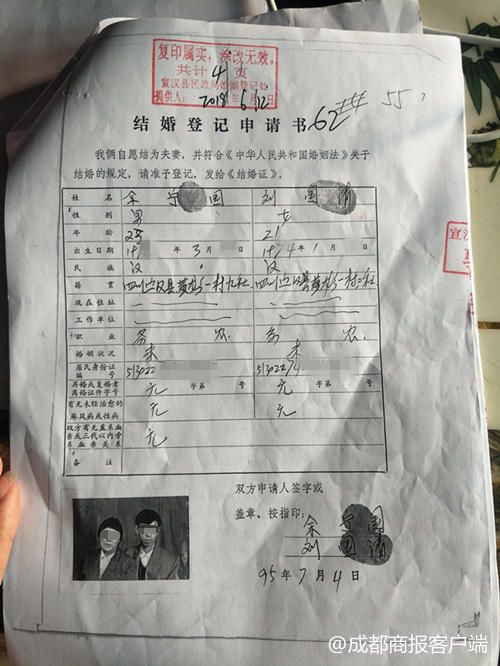 复印属实，涂改无效。
共计4页
宣汉县民政局婚姻登记处
提供人： 2018年6月12日
55
结婚登记申请书
我俩自愿结为夫妻，并符合《中华人民共和国婚姻法》关于
结婚的规定，请准予登记，发给《结婚证》。
姓名 余宁国 刘国清
性别 男 女
年龄 25 21
出生日期 年3月 日 1974年1月 日
民族 汉 汉
籍贯 四川宣汉县 一村九社 四川宣汉县 一村二社
现在住址
工作单位
职业 务农 务农
婚姻状况 未 未
居民身份证编号 513022 513022
再婚或复婚者离婚证件字号 无 字第 号 无 字第 号
有无未经治愈的麻风病或性病 无 无
双方有无直系血亲或三代以内旁系血亲关系 无
备注
双方申请人签字或
盖章、按指印： 余宁国
刘国清
95年7月4日
宣汉
@成都商报客户端